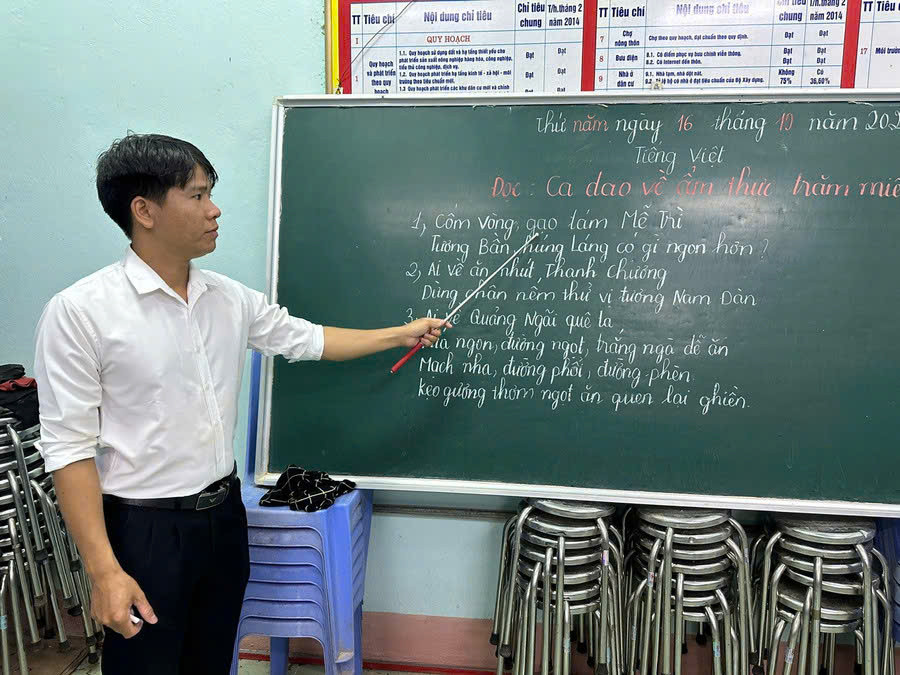 TT Tiêu chí Nội dung chỉ tiêu Chỉ tiêu chung T/h.tháng 2 năm 2014
I QUY HOẠCH
1 Quy hoạch và phát triển theo quy hoạch
1.1. Quy hoạch sử dụng đất và hạ tầng thiết yếu cho phát triển sản xuất nông nghiệp hàng hóa, công nghiệp, tiểu thủ công nghiệp, dịch vụ. Đạt Đạt
1.2. Quy hoạch phát triển hạ tầng kinh tế - xã hội - môi trường theo tiêu chuẩn mới. Đạt Đạt
1.3 Quy hoạch phát triển các khu dân cư mới và chỉnh
TT Tiêu chí Nội dung chỉ tiêu Chỉ tiêu chung T/h.tháng 2 năm 2014
7 Chợ nông thôn Chợ theo quy hoạch, đạt chuẩn theo quy định. Đạt Đạt
8 Bưu điện 8.1. Có điểm phục vụ bưu chính viễn thông. Đạt Đạt
8.2. Có Internet đến thôn. Đạt Đạt
9 Nhà ở dân cư 9.1. Nhà tạm, nhà dột nát. Không Có
hộ có nhà ở đạt tiêu chuẩn của Bộ Xây dựng. 75% 36.60%
TT Tiêu
17 Môi trường
Thứ năm ngày 16 tháng năm
Tiếng Việt
Đọc: Ca dao về ẩm thực trăm miền
1, Cốm Vòng, gạo tám Mễ Trì
Tương Bần, húng Láng có gì ngon hơn?
2, Ai về ăn nhút, Thanh Chương
Dừng chân nếm thử vị tương Nam Đàn
3, Ai về Quảng Ngãi quê ta
ngon, đường ngọt, trắng ngà dễ ăn
Mạch nha, đường phổi, đường phèn
Kẹo gương thơm ngọt ăn quen lại ghiền.